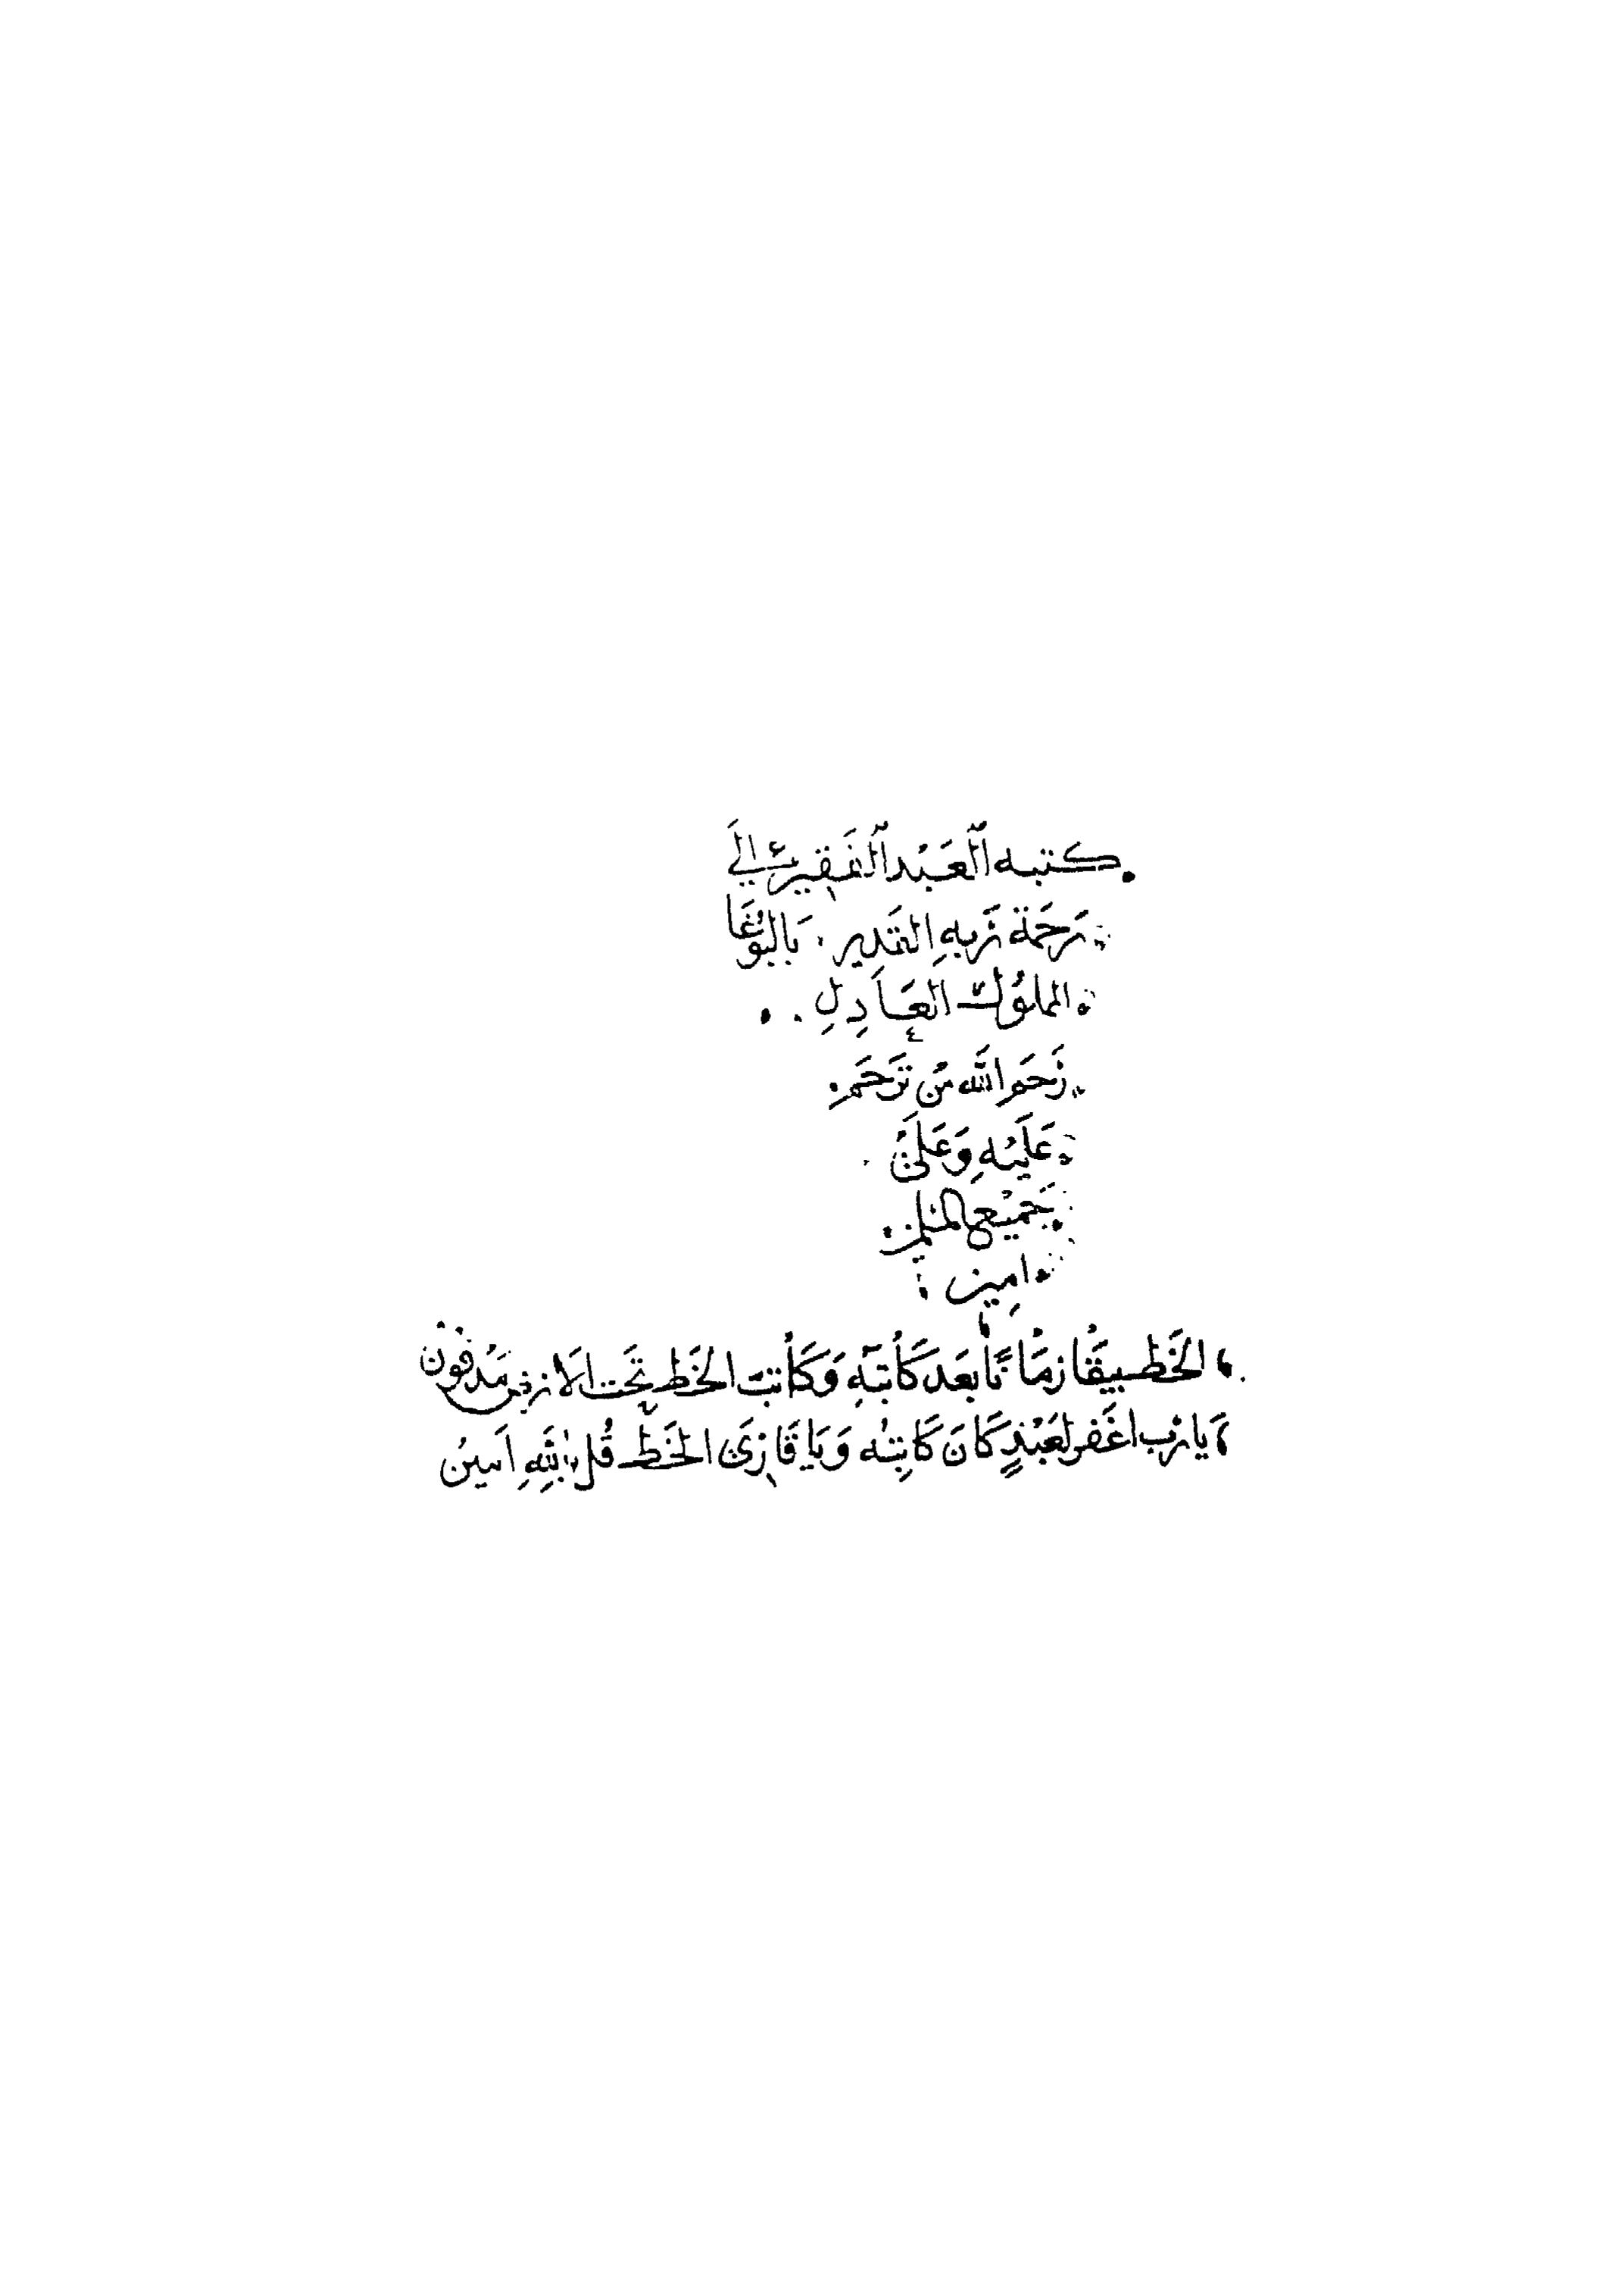 كتبه العَبْد الفَقِير إلَى
رَحمَة رَبهِ القَدير . يَالبُوغَا
المملُوك العَادِلِي
رَحِمَ الله مَن تَرَحَّمَ
عَلَيْهِ وَعَلَى
جَمِيْع المسلمين
امِين
الخَط يبقَا زمَانًا بَعَد كَاتبَهِ وَكَاتبَ الخَط تَحَت الاَرض مَدفُون
يَا رَب اغفَر لعَبْدٍ كَانَ كَاتِبَه وَيَا قَارئ الخَط قُل بالله اَمين